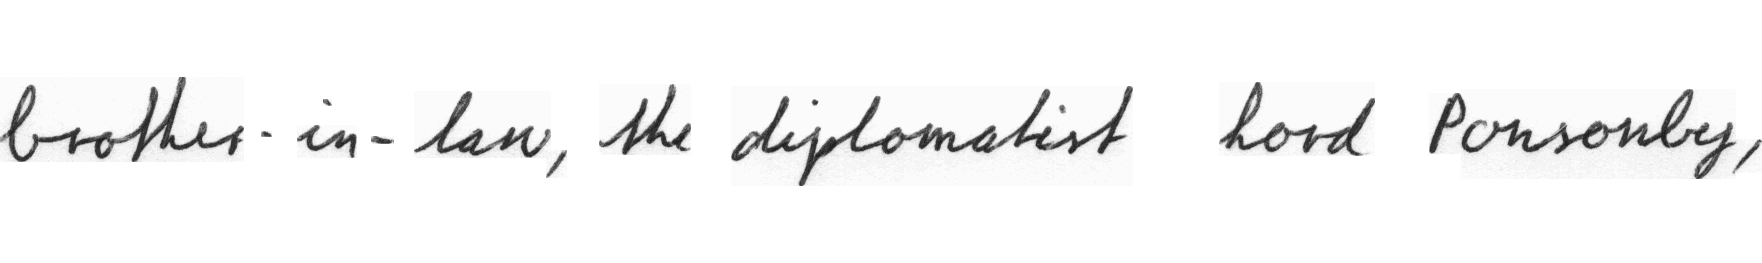 brother-in-law, the diplomatist Lord Ponsonby,